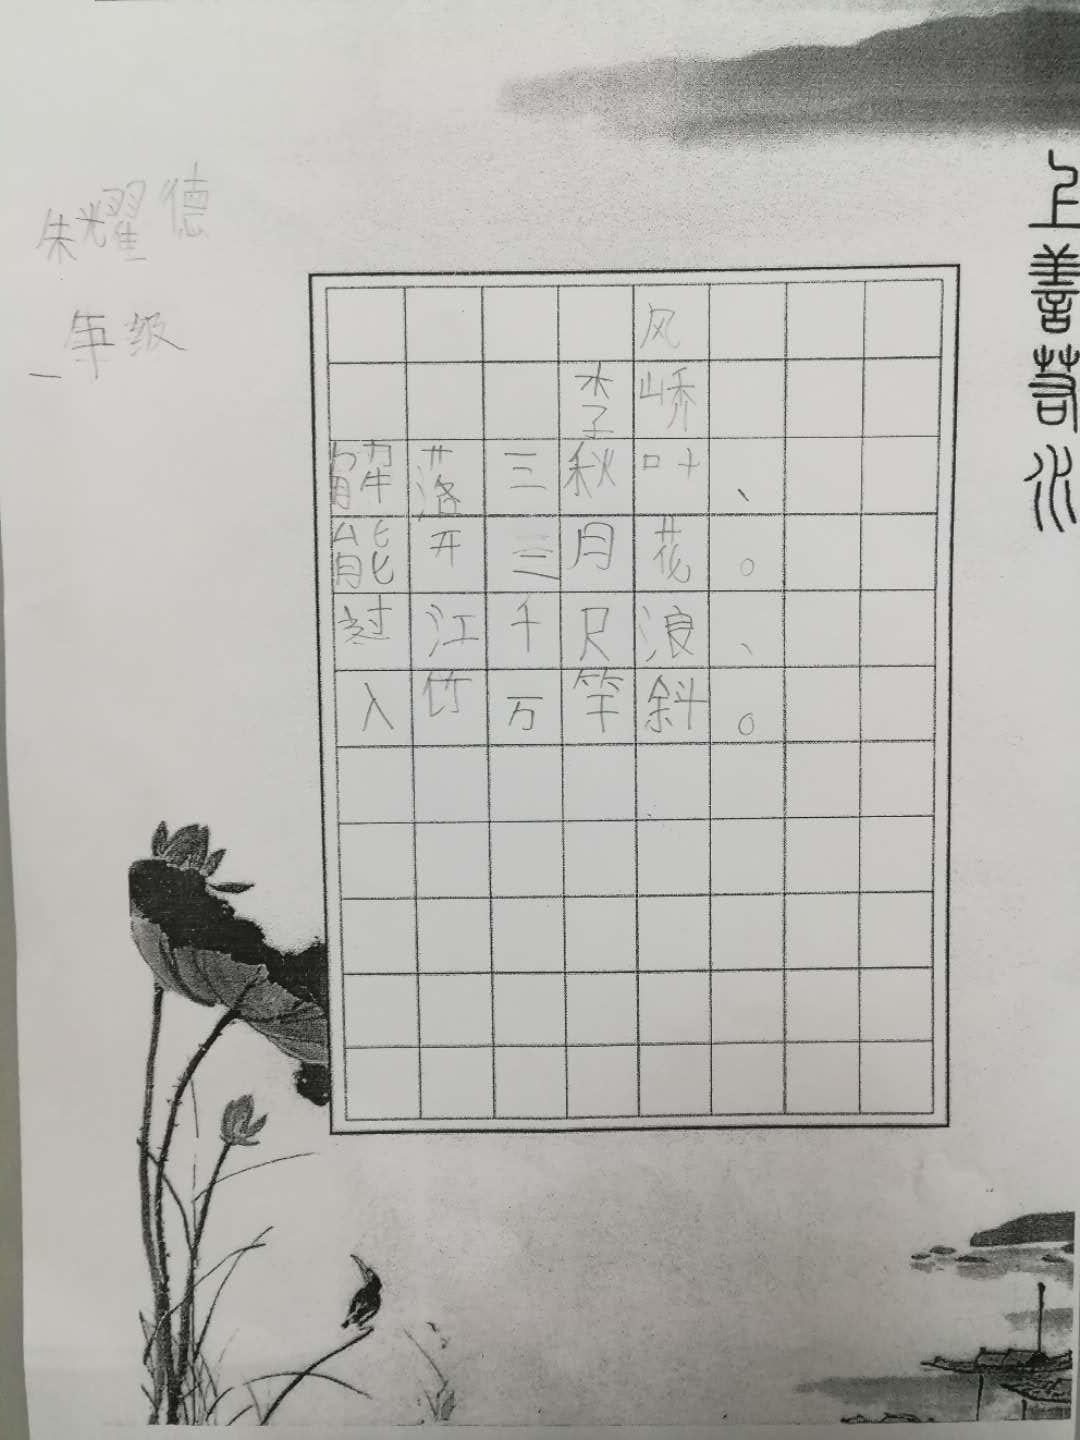 上善若水
朱耀德
一年级
风
李峤
解落三秋叶、
能开三月花。
过江千尺浪、
入竹万竿斜。